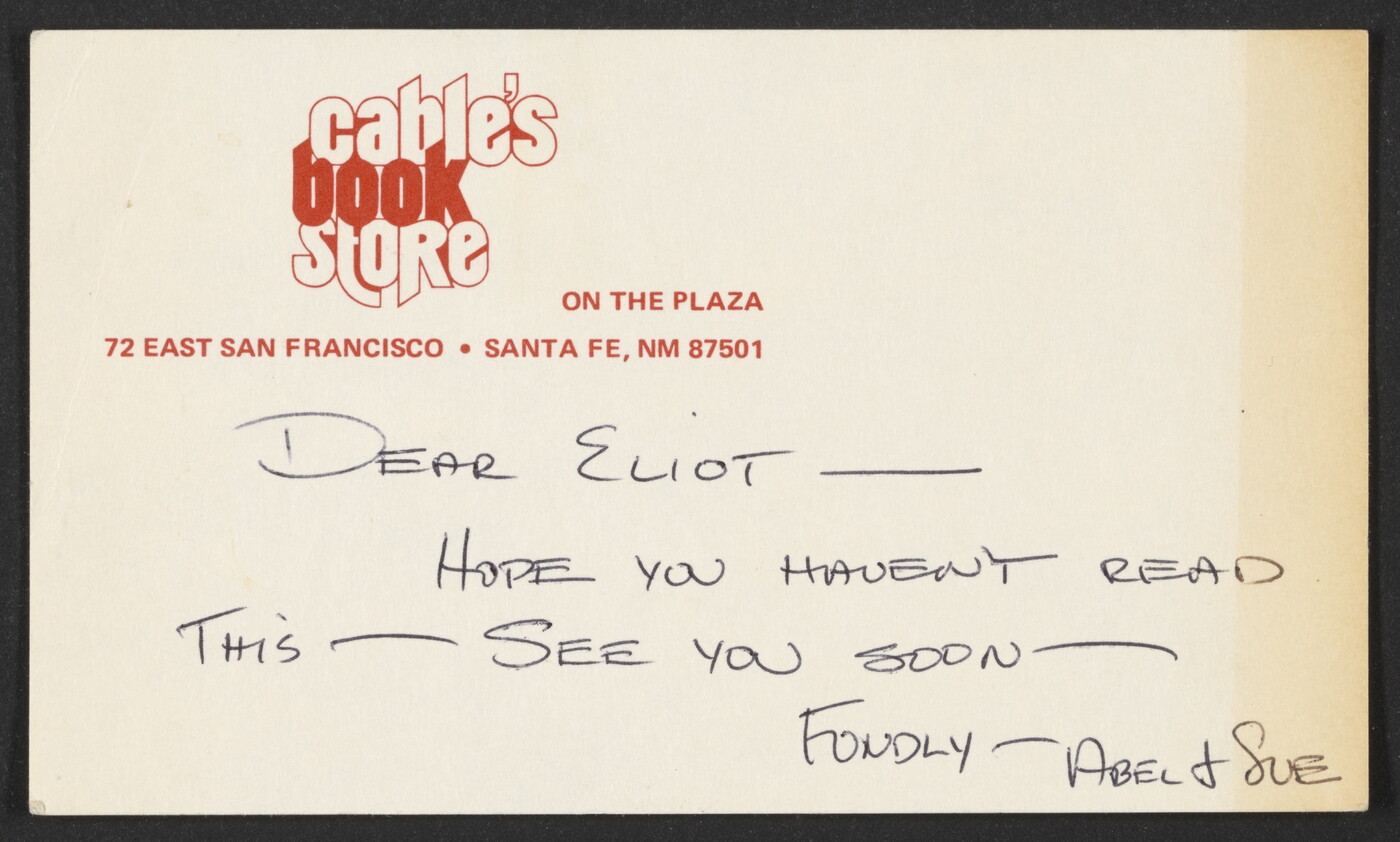 cable's
book
store
ON THE PLAZA
72 EAST SAN FRANCISCO • SANTA FE, NM 87501
DEAR ELIOT —
HOPE YOU HAVEN'T READ
THIS — SEE YOU SOON —
FONDLY — ABEL & SUE